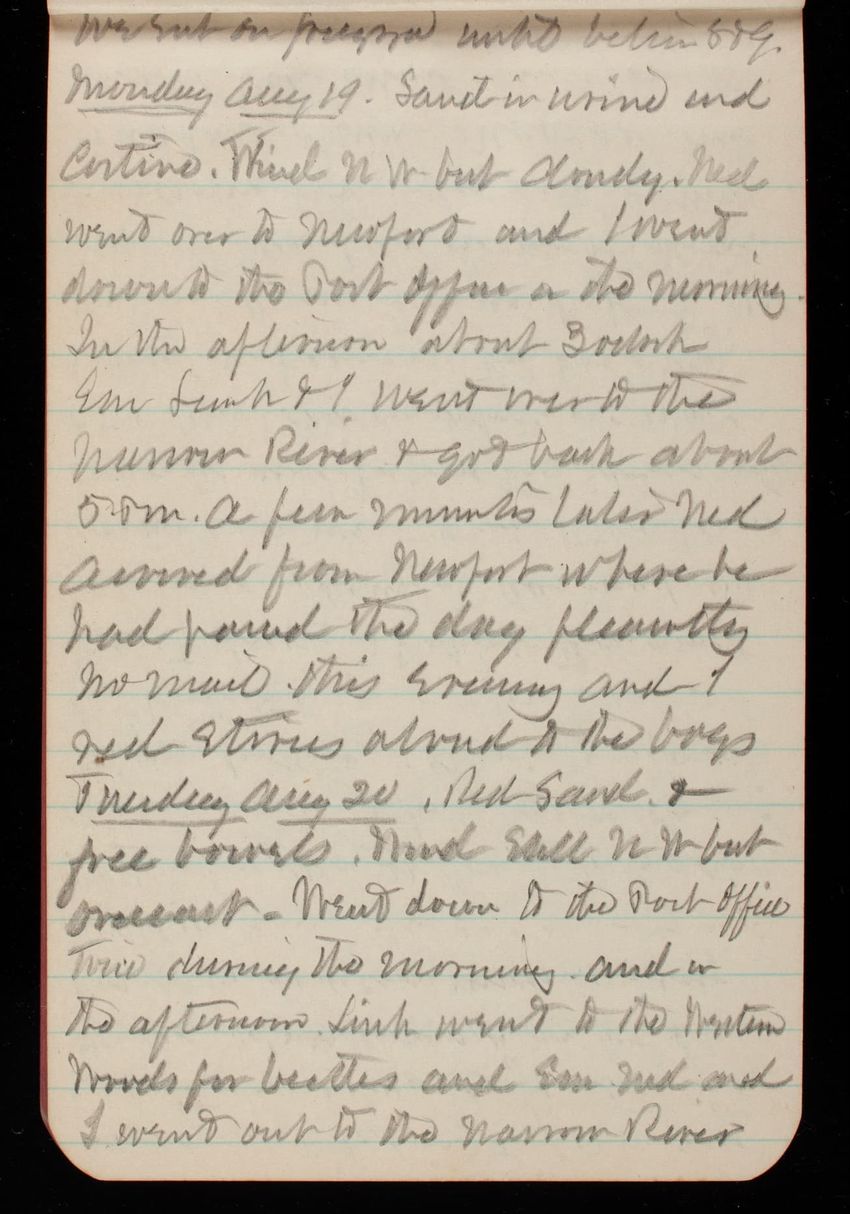 We sat on piazza until between 8 & 9.
Monday Aug 19. Sand in urine and
Costive. Wind N W but cloudy. Ned
went over to Newport and I went
down to the Post Office in the morning.
In the afternoon about 3 oclock
Em Linh & I went over to the
Narrow River & got back about
5 P.m. A few minutes later Ned
arrived from Newport where he
had passed the day pleasantly
No mail this evening and I
red Stories aloud to the boys
Tuesday Aug 20. Red Sand &
free bowels. Wind Still N W but
overcast - Went down to the Post Office
twice during the morning and in
the afternoon Linh went to the Western
Woods for beetles and Em Ned and
I went out to the Narrow River